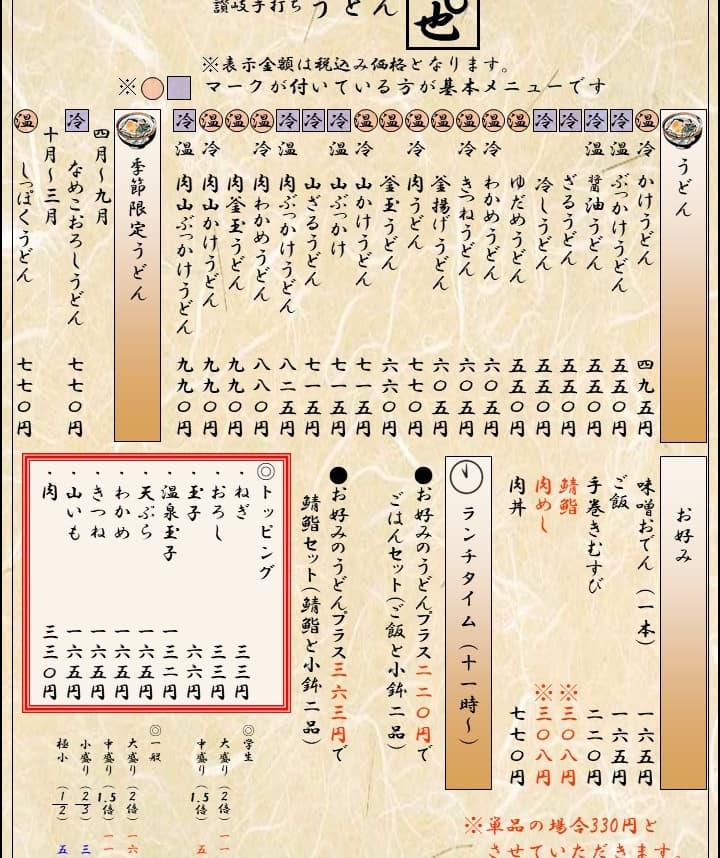 讃岐手打ち うどん
也
※表示金額は税込み価格となります。
※ マークが付いている方が基本メニューです
うどん
温 冷 かけうどん 四九五円
冷 温 ぶっかけうどん 五五〇円
冷 温 醤油うどん 五五〇円
冷 ざるうどん 五五〇円
冷 冷しうどん 五五〇円
温 ゆだめうどん 五五〇円
温 冷 わかめうどん 六〇五円
温 冷 きつねうどん 六〇五円
温 釜揚げうどん 六〇五円
温 冷 肉うどん 七七〇円
温 釜玉うどん 六六〇円
温 冷 山かけうどん 七一五円
冷 温 山ぶっかけ 七一五円
冷 山ざるうどん 七一五円
冷 温 肉ぶっかけうどん 八二五円
温 冷 肉わかめうどん 八八〇円
温 肉釜玉うどん 九九〇円
温 冷 肉山かけうどん 九九〇円
冷 温 肉山ぶっかけうどん 九九〇円
季節限定うどん
四月〜九月
冷 なめこおろしうどん 七七〇円
十月〜三月
温 しっぽくうどん 七七〇円
お好み
味噌おでん（一本） 一六五円
ご飯 一六五円
手巻きむすび 二二〇円
鯖鮨 ※三〇八円
肉めし ※三〇八円
肉丼 七七〇円
※単品の場合330円と
させていただきます。
ランチタイム（十一時〜）
●お好みのうどんプラス二二〇円で
ごはんセット（ご飯と小鉢二品）
●お好みのうどんプラス三六三円で
鯖鮨セット（鯖鮨と小鉢二品）
◎トッピング
・ねぎ 三三円
・おろし 三三円
・玉子 六六円
・温泉玉子 一三二円
・天ぷら 一六五円
・わかめ 一六五円
・きつね 一六五円
・山いも 一六五円
・肉 三三〇円
◎学生
大盛り（2倍） 一一
中盛り（1.5倍） 五
◎一般
大盛り（2倍） 一六
中盛り（1.5倍） 一一
小盛り（2/3） 三
極小（1/2） 五